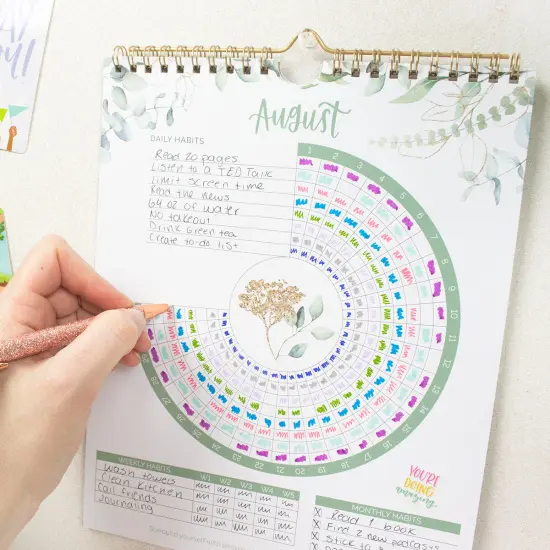 August
DAILY HABITS
Read 20 pages
Listen to a TED Talk
Limit screen time
Read the news
64 oz of water
No takeout
Drink Green tea
Create to-do list
1
2
3
4
5
6
7
8
9
10
11
12
13
14
15
16
17
18
19
20
21
22
23
24
25
26
27
28
29
YOU'RE
DOING
amazing.
WEEKLY HABITS W1 W2 W3 W4 W5
Wash towels
Clean kitchen
Call friends
Journaling
MONTHLY HABITS
X Read 1 book
X Find 2 new podcasts
X Stick to